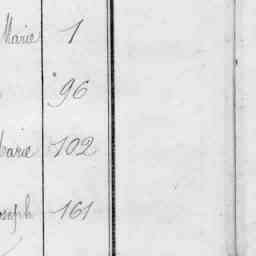 Marie 1
96
Marie 102
Joseph 161